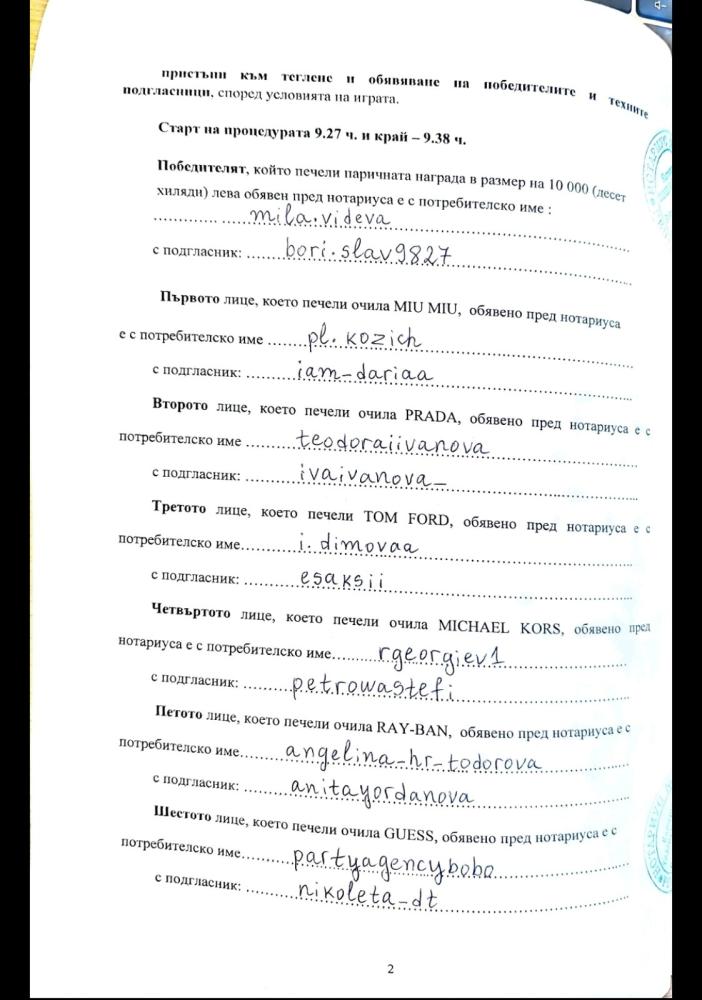 пристъпи към теглене и обявяване на победителите и техните
подгласници, според условията на играта.
Старт на процедурата 9.27 ч. и край – 9.38 ч.
Победителят, който печели паричната награда в размер на 10 000 (десет
хиляди) лева обявен пред нотариуса е с потребителско име :
............. ..... mila.videva .....................................................
с подгласник: ....... bori.slav9827 .......................................
Първото лице, което печели очила MIU MIU, обявено пред нотариуса
е с потребителско име ........ pl.kozich .......................................
с подгласник: ......... iam-dariaa .......................................
Второто лице, което печели очила PRADA, обявено пред нотариуса е с
потребителско име ......... teodoraiivanova .............................
с подгласник: ......... ivaivanova_ .......................................
Третото лице, което печели TOM FORD, обявено пред нотариуса е с
потребителско име.......... i.dimovaa .......................................
с подгласник: ......... esaksii .......................................
Четвъртото лице, което печели очила MICHAEL KORS, обявено пред
нотариуса е с потребителско име......... rgeorgiev1 .......................
с подгласник: ......... petrowastefi .......................................
Петото лице, което печели очила RAY-BAN, обявено пред нотариуса е с
потребителско име......... angelina_hr_todorova .................
с подгласник: ......... anitayordanova .............................
Шестото лице, което печели очила GUESS, обявено пред нотариуса е с
потребителско име......... partyagencybobo .............................
с подгласник: ......... nikoleta_dt .......................................
2